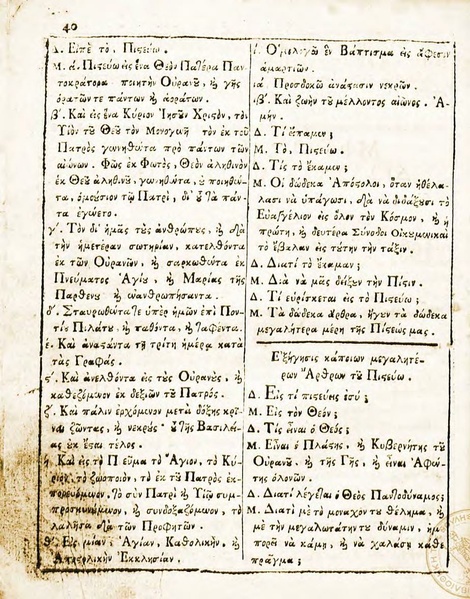 40
Δ. Εἰπὲ τὸ, Πιςεύω.
Μ. ά. Πιςεύω εἰς ἕνα Θεὸν Πατέρα Παν
τοκράτορα ποιητὴν Οὐρανȣ͂, ϗ γῆς
ὁρατῶντε πάντων ϗ ἀοράτων.
β΄. Καὶ εἰς ἕνα Κύριον Ἰησȣ͂ν Χριςὸν, τὸν
Υἱὸν τȣ͂ Θεȣ͂ τὸν Μονογενῆ τὸν ἐκ τȣ͂
Πατρὸς γεννηθέντα πρὸ πάντων τῶν
αἰώνων. Φῶς ἐκ Φωτὸς, Θεὸν ἀληθινὸν
ἐκ Θεȣ͂ ἀληθινȣ͂, γεννηθέντα, ȣ̓ ποιηθέν
τα, ὁμοȣ́σιον τῷ Πατρὶ, δι' ȣ̔͂ τὰ πάν
τα ἐγένετο.
γ΄. Τὸν δι' ἡμᾶς τȣ̀ς ἀνθρώπȣς, ϗ διὰ
τὴν ἡμετέραν σωτηρίαν, κατελθόντα
ἐκ τῶν Οὐρανῶν, ϗ σαρκωθέντα ἐκ
Πνεύματος Ἁγίȣ, ϗ Μαρίας τῆς
Παρθένȣ ϗ ἐνανθρωπήσαντα.
δ΄. Σταυρωθέντα τε ὑπὲρ ἡμῶν ἐπὶ Πον
τίȣ Πιλάτȣ, ϗ παθόντα, ϗ ταφέντα.
έ. Καὶ ἀναςάντα τῇ τρίτῃ ἡμέρᾳ κατὰ
τὰς Γραφάς.
ς΄. Καὶ ἀνελθόντα εἰς τȣ̀ς Οὐρανȣ̀ς, ϗ
καθεζόμενον ἐκ δεξιῶν τȣ͂ Πατρός.
ζ΄. Καὶ πάλιν ἐρχόμενον μετὰ δόξης κρῖ
ναι ζῶντας, ϗ νεκρȣ́ς· ȣ̔͂ τῆς Βασιλεί
ας ȣ̓κ ἔςαι τέλος.
ή. Καὶ εἰς τὸ Πνεῦμα τὸ Ἅγιον, τὸ Κύ
ριον, τὸ ζωοποιὸν, τὸ ἐκ τȣ͂ Πατρὸς ἐκ
πορευόμενον, Τὸ σὺν Πατρὶ ϗ Υἱῷ συμ
προσκυνȣ́μενον, ϗ συνδοξαζόμενον, τὸ
λαλῆσαν διὰ τῶν Προφητῶν.
θ΄. Εἰς μίαν, Ἁγίαν, Καθολικὴν, ϗ
Ἀποςολικὴν Ἐκκλησίαν.
ί. Ὁμολογῶ ἓν Βάπτισμα εἰς ἄφεσιν
ἁμαρτιῶν.
ιά. Προσδοκῶ ἀνάςασιν νεκρῶν.
ιβ΄. Καὶ ζωὴν τȣ͂ μέλλοντος αἰῶνος. Ἀ-
μήν.
Δ. Τί εἴπαμεν;
Μ. Τὸ, Πιςεύω.
Δ. Τίς τὸ ἔκαμεν;
Μ. Οἱ δώδεκα Ἀπόςολοι, ὅταν ἠθέλα-
λασι νὰ ὑπάγωσι, διὰ νὰ διδάξȣσι τὸ
Εὐαγγέλιον εἰς ὅλον τὸν Κόσμον, ϗ ἡ
πρώτη, ϗ δευτέρα Σύνοδοι Οἰκȣμενικαὶ
τὸ ἔβαλαν εἰς τȣ́την τὴν τάξιν.
Δ. Διατί τὸ ἔκαμαν;
Μ. Διὰ νὰ μᾶς δείξȣν τὴν Πίςιν.
Δ. Τί εὑρίσκεται εἰς τὸ Πιςεύω;
Μ. Τὰ δώδεκα ἄρθρα, ἤγȣν τὰ δώδεκα
μεγαλήτερα μέρη τῆς Πίςεώς μας.
Ἐξήγησις κάποιων μεγαλητέ-
ρων Ἄρθρων τȣ͂ Πιςεύω.
Δ. Εἰς τί πιςεύεις ἐσύ;
Μ. Εἰς τὸν Θεόν;
Δ. Τίς εἶναι ὁ Θεός;
Μ. Εἶναι ὁ Πλάςης, ϗ Κυβερνήτης τȣ͂
Οὐρανȣ͂, ϗ τῆς Γῆς, ϗ εἶναι Ἀφέν-
της ὁλονῶν.
Δ. Διατί λέγεται ὁ Θεὸς Παντοδύναμος;
Μ. Διατὶ μὲ τὸ μοναχόν τȣ θέλημα, ϗ
μὲ τὴν μεγαλωτάτην τȣ δύναμιν, ἠμ
πορεῖ νὰ κάμῃ, ϗ νὰ χαλάσῃ κάθε
πρᾶγμα;